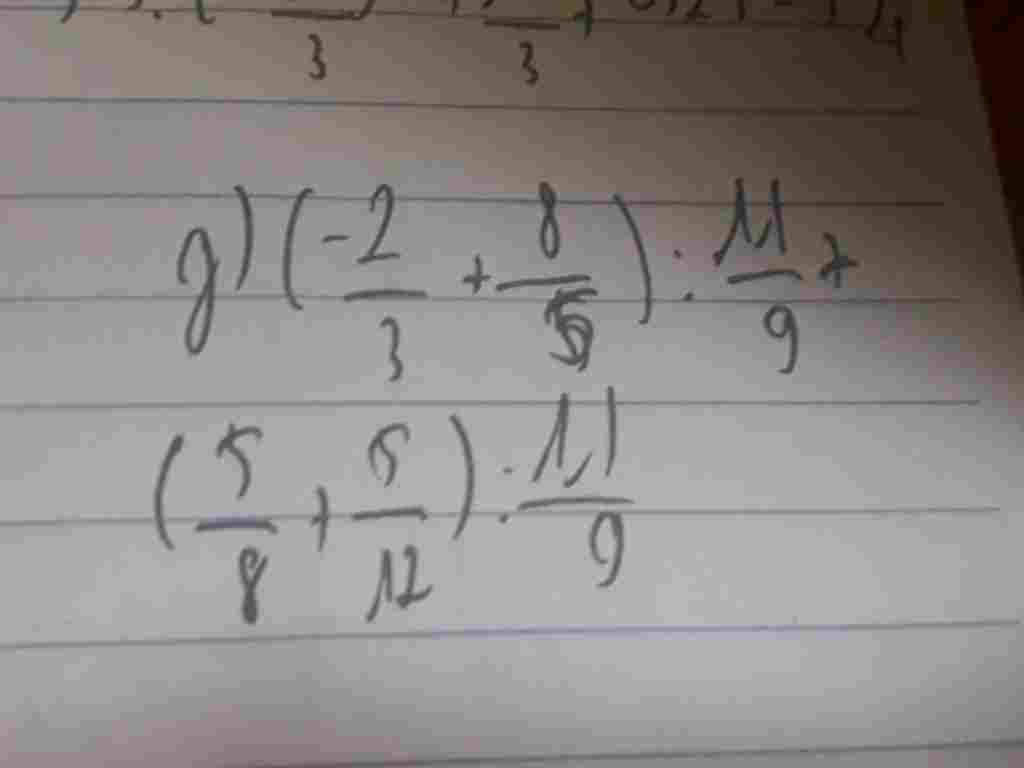 g) (-2/3 + 8/5) : 1,1/9 +
(5/8 + 5/12) : 1,1/9